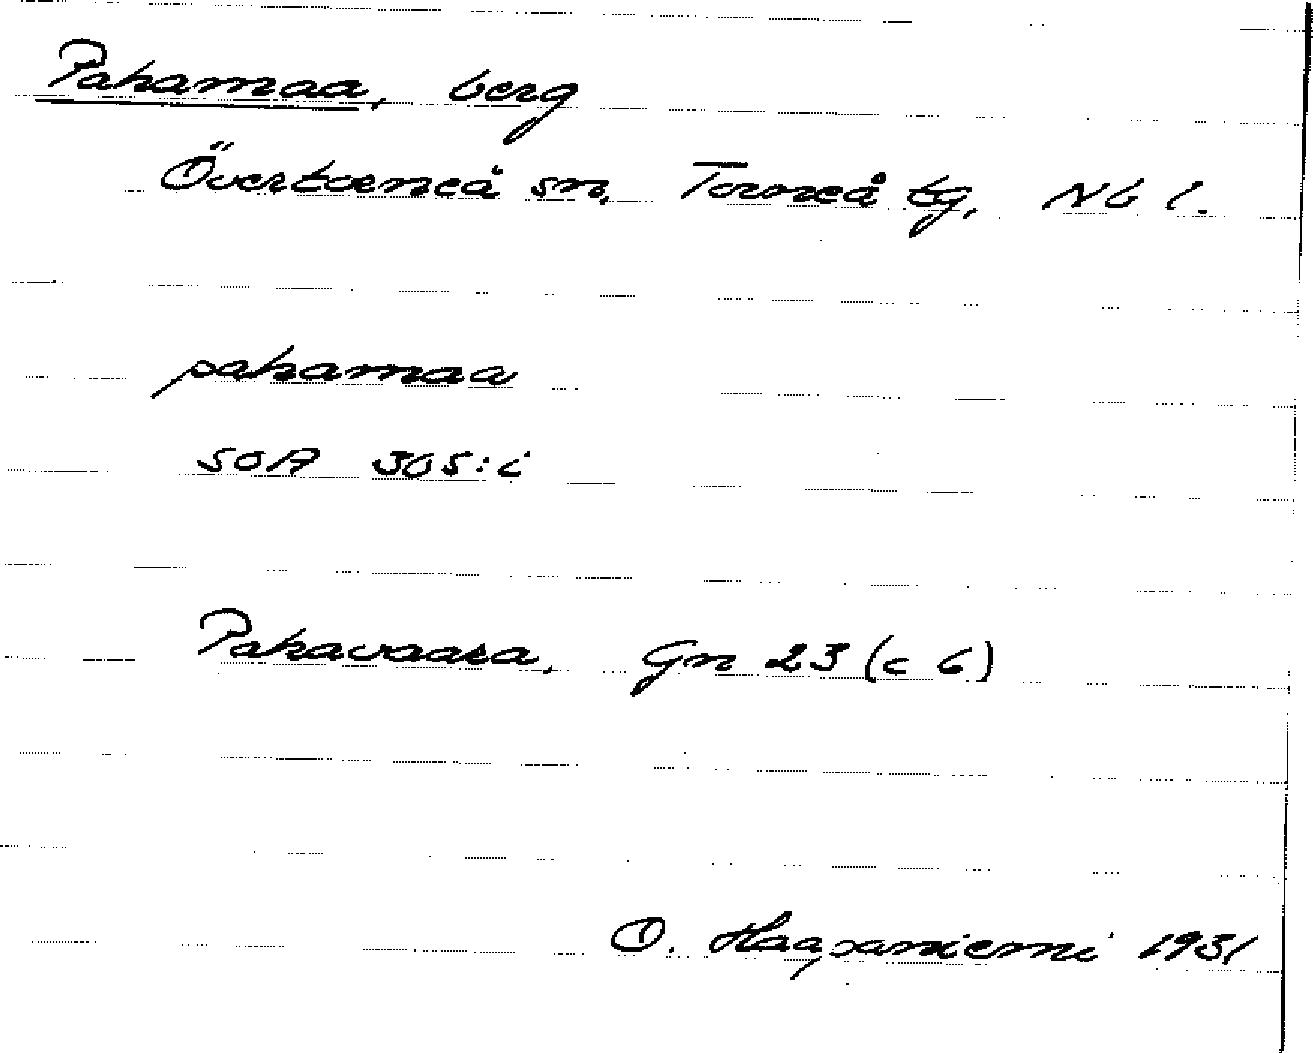 Pahamaa, berg
Övertorneå sn, Torneå tg, Nb l.
pahamaa
SOA 305:i
Pahavaara, Gn 23 (c 6)
O. Haapaniemi 1931